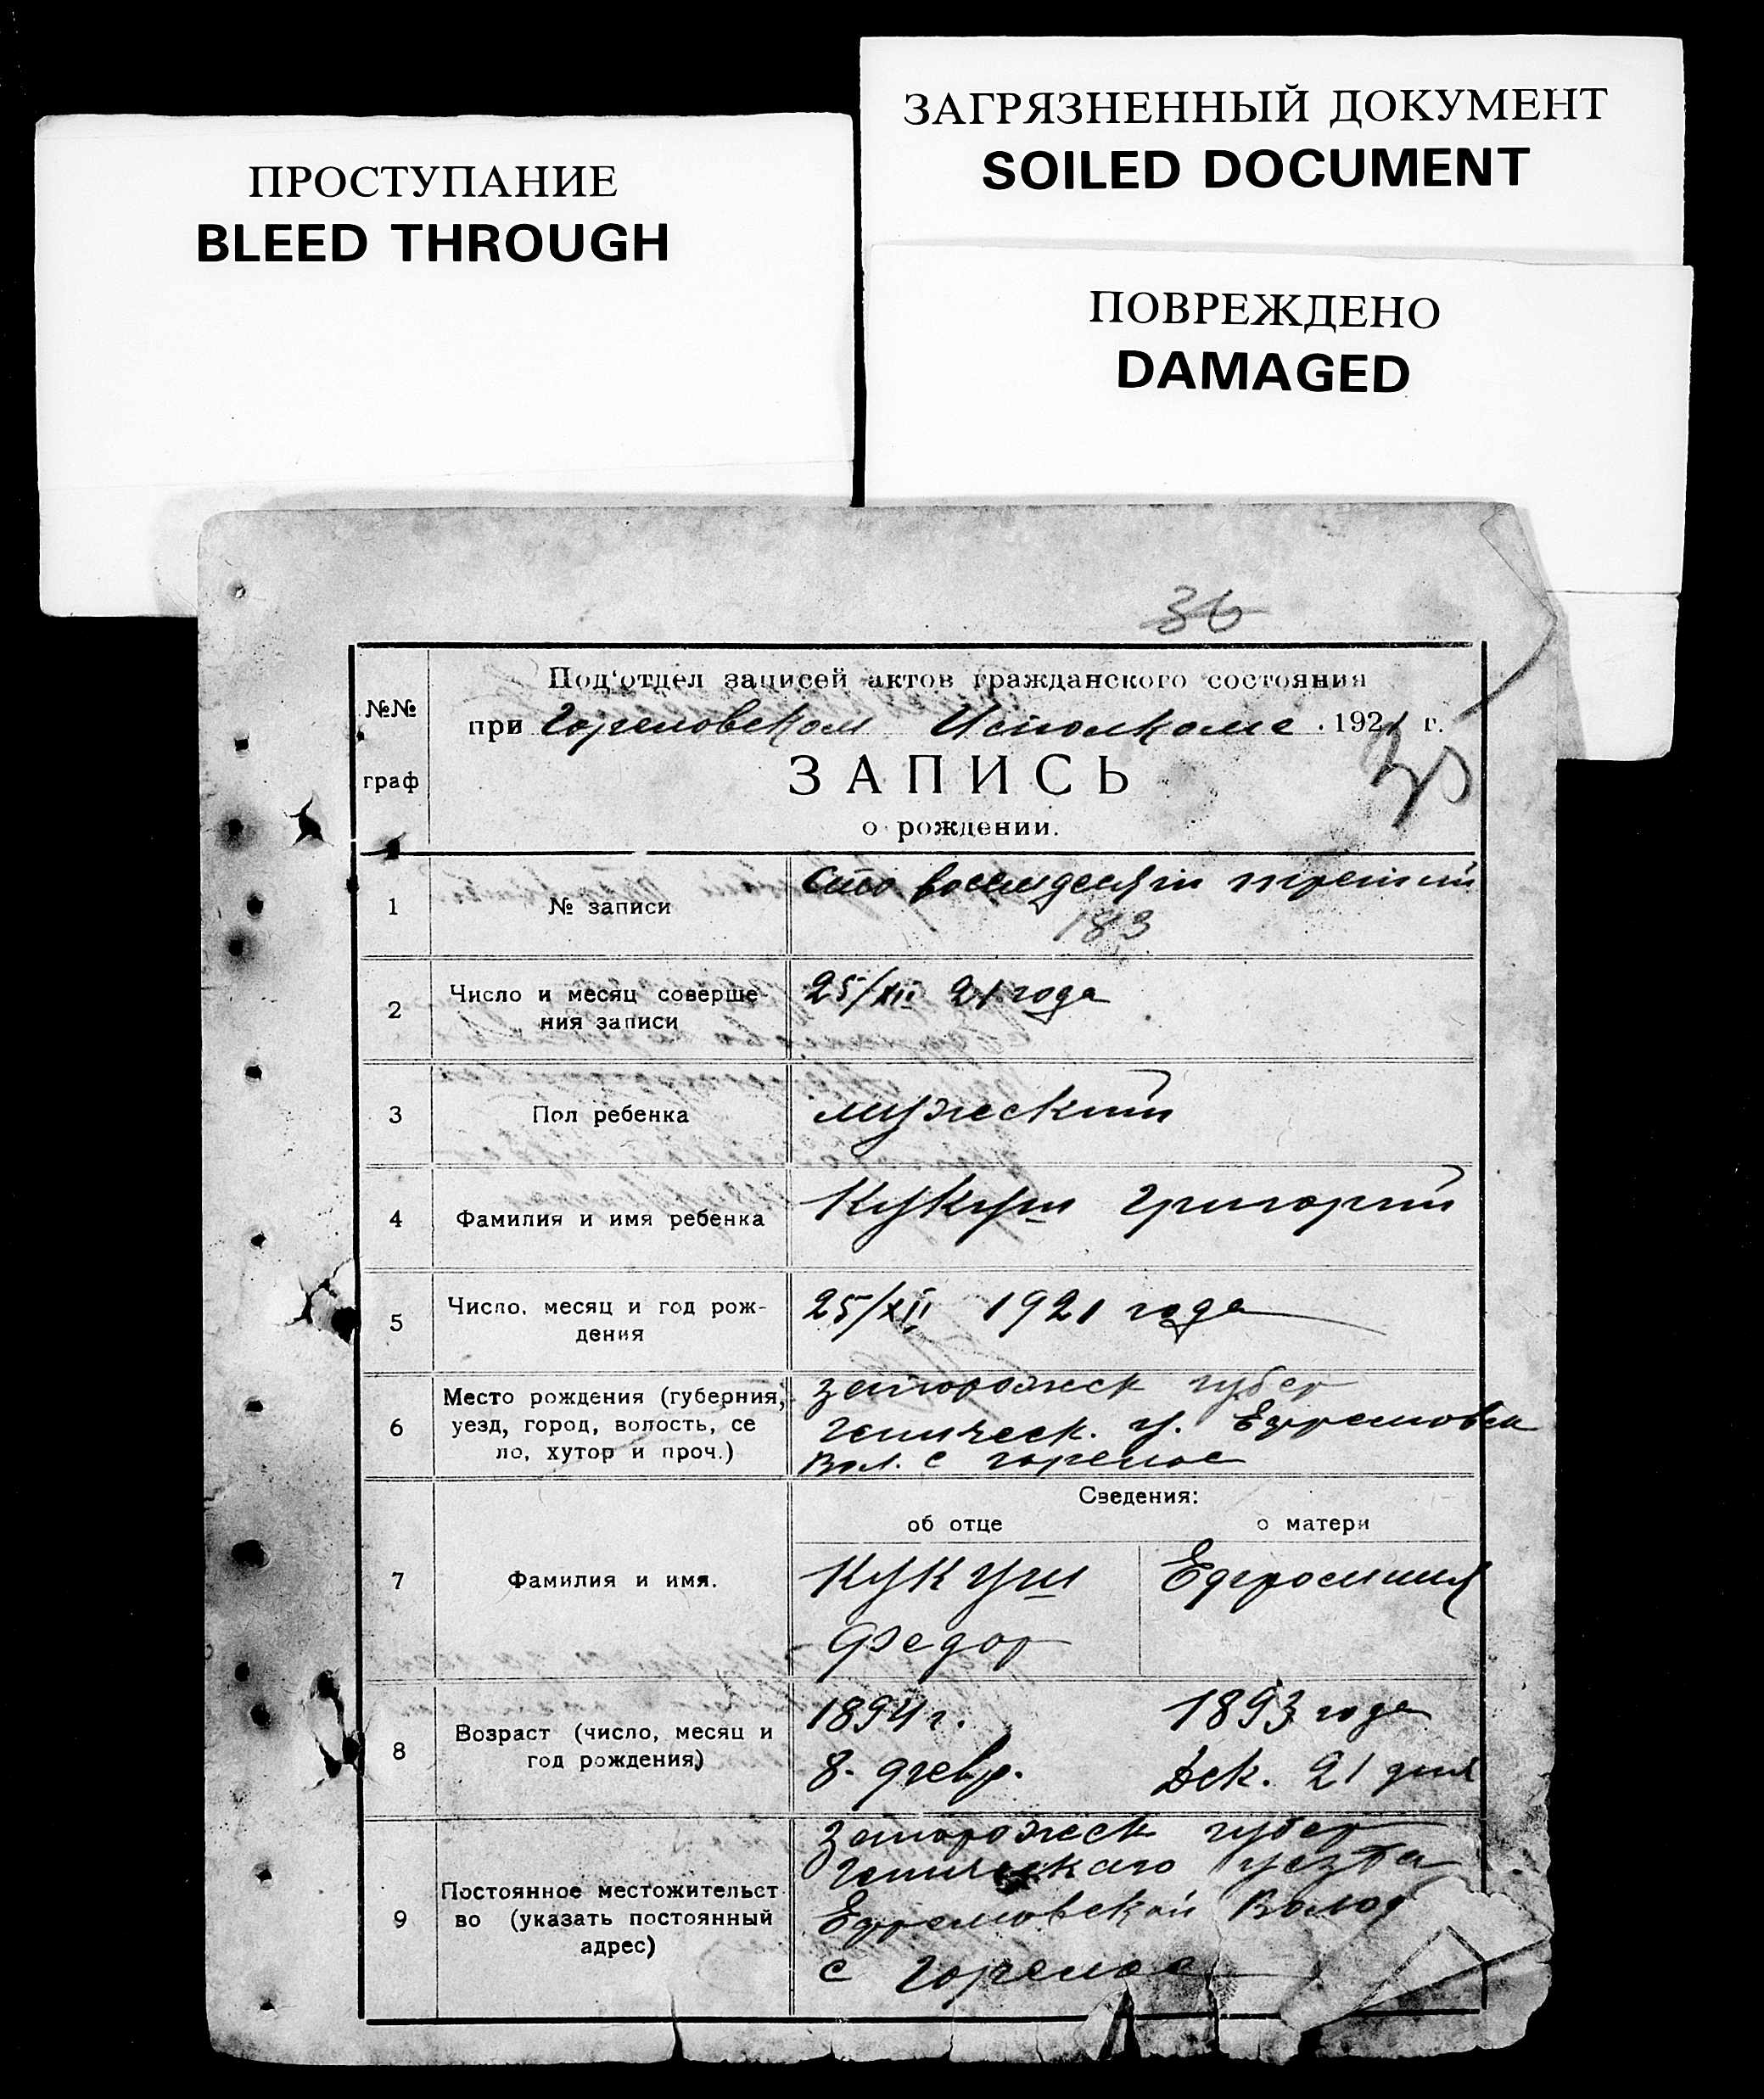 ПРОСТУПАНИЕ
BLEED THROUGH
ЗАГРЯЗНЕННЫЙ ДОКУМЕНТ
SOILED DOCUMENT
ПОВРЕЖДЕНО
DAMAGED
36
№№
граф
Под'отдел записей актов гражданского состояния
при Гореловском Исполкоме 1921 г.
ЗАПИСЬ
о рождении.
1
№ записи
Сто восемдесят третий
183
2
Число и месяц соверше-
ния записи
25/XII 21 года
3
Пол ребенка
мужеский
4
Фамилия и имя ребенка
Кукуш Григорий
5
Число, месяц и год рож-
дения
25/XII 1921 года
6
Место рождения (губерния,
уезд, город, волость, се
ло, хутор и проч.)
Запорожск губер
Геническ. у. Ефремовск
Вол. с Горелое
Сведения:
об отце
о матери
7
Фамилия и имя.
Кукуш
Федор
Ефросиния
8
Возраст (число, месяц и
год рождения)
1894 г.
8. февр.
1893 года
Дек. 21 дня
9
Постоянное местожительст
во (указать постоянный
адрес)
Запорожск губер
Генического уезда
Ефремовской Волос
с Горелое